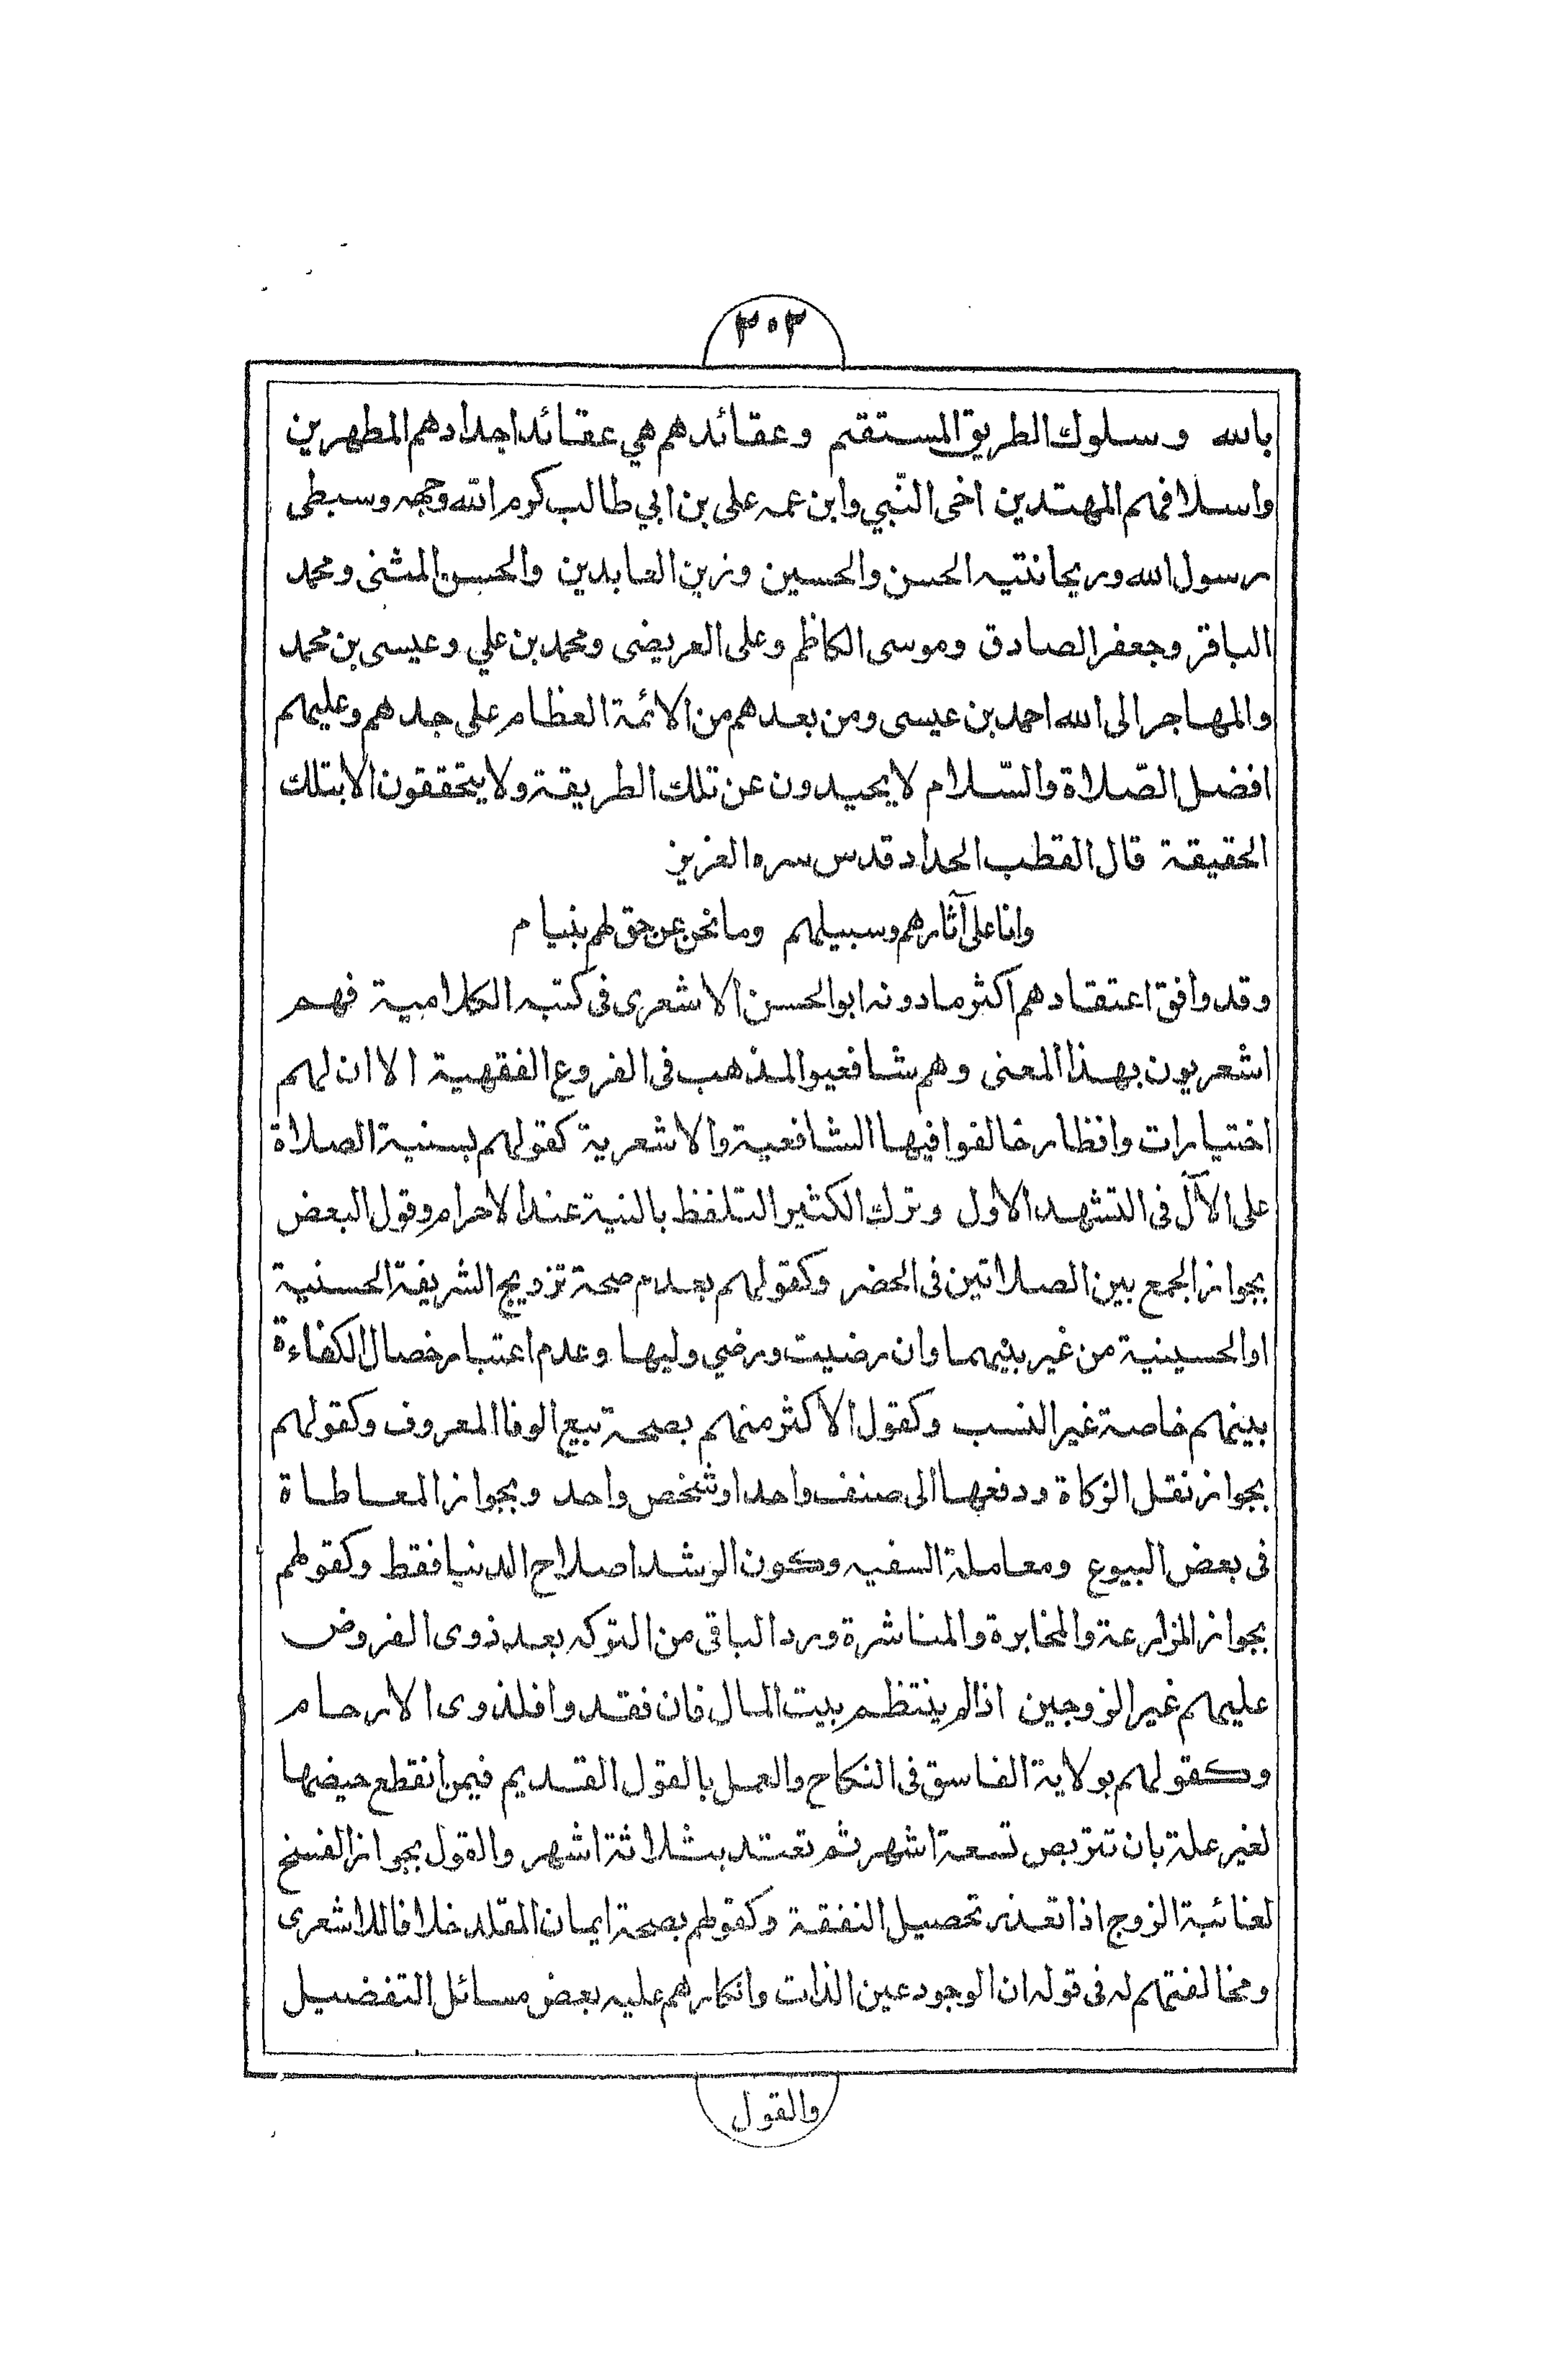 ٣٠٢
بالله وسلوك الطريق المستقيم وعقائدهم هي عقائد اجدادهم المطهرين
واسلافهم المهتدين اخى النّبي وابن عمه على بن ابي طالب كرم الله وجهه وسبطى
رسول الله وريحانتيه الحسن والحسين وزين العابدين والحسن المثنى ومحمد
الباقر وجعفر الصادق وموسى الكاظم وعلى العريضى ومحمد بن علي وعيسى بن محمد
والمهاجر الى الله احمد بن عيسى ومن بعدهم من الائمة العظام على جدهم وعليهم
افضل الصّلاة والسّلام لا يحيدون عن تلك الطريقة ولا يتحققون الا بتلك
الحقيقة قال القطب الحداد قدس سره العزيز
وانا على آثارهم وسبيلهم وما نحن عن حق لهم بنيام
وقد وافق اعتقادهم اكثر ما دونه ابو الحسن الاشعرى فى كتبه الكلامية فهم
اشعريون بهذا المعنى وهم شافعيوا المذهب فى الفروع الفقهية الا ان لهم
اختيارات وانظار خالفوا فيها الشافعية والاشعرية كقولهم بسنية الصلاة
على الآل فى التشهد الاول وترك الكثير التلفظ بالنية عند الاحرام وقول البعض
بجواز الجمع بين الصلاتين فى الحضر وكقولهم بعدم صحة تزويج الشريفة الحسنية
او الحسينية من غير بنيهما وان رضيت ورضي وليها وعدم اعتبار خصال الكفاءة
بينهم خاصة غير النسب وكقول الاكثر منهم بصحة بيع الوفا المعروف وكقولهم
بجواز نقل الزكاة ودفعها الى صنف واحد او شخص واحد وبجواز المعاطاة
فى بعض البيوع ومعاملة السفيه وكون الرشد اصلاح الدنيا فقط وكقولهم
بجواز المزارعة والمخابرة والمناشرة ورد الباقى من التركه بعد ذوى الفروض
عليهم غير الزوجين اذا لم ينتظم بيت المال فان فقدوا فلذوى الارحام
وكقولهم بولاية الفاسق فى النكاح والعمل بالقول القديم فيمن انقطع حيضها
لغير علة بان تتربص تسعة اشهر ثم تعتد بثلاثة اشهر والقول بجواز الفسخ
لغائبة الزوج اذا تعذر تحصيل النفقة وكقولهم بصحة ايمان المقلد خلافا للاشعرى
ومخالفتهم له فى قوله ان الوجود عين الذات وانكارهم عليه بعض مسائل التفضيل
والقول